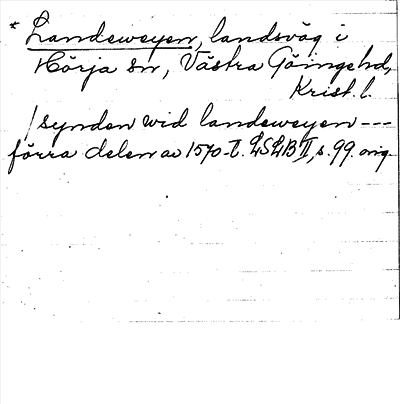 * Landeweyen, landsväg i
Hörja sn, Västra Göinge hd,
Krist. l.
/ synden wid landeweyen ---
förra delen av 1570-t. LSLB II, s. 99. orig.